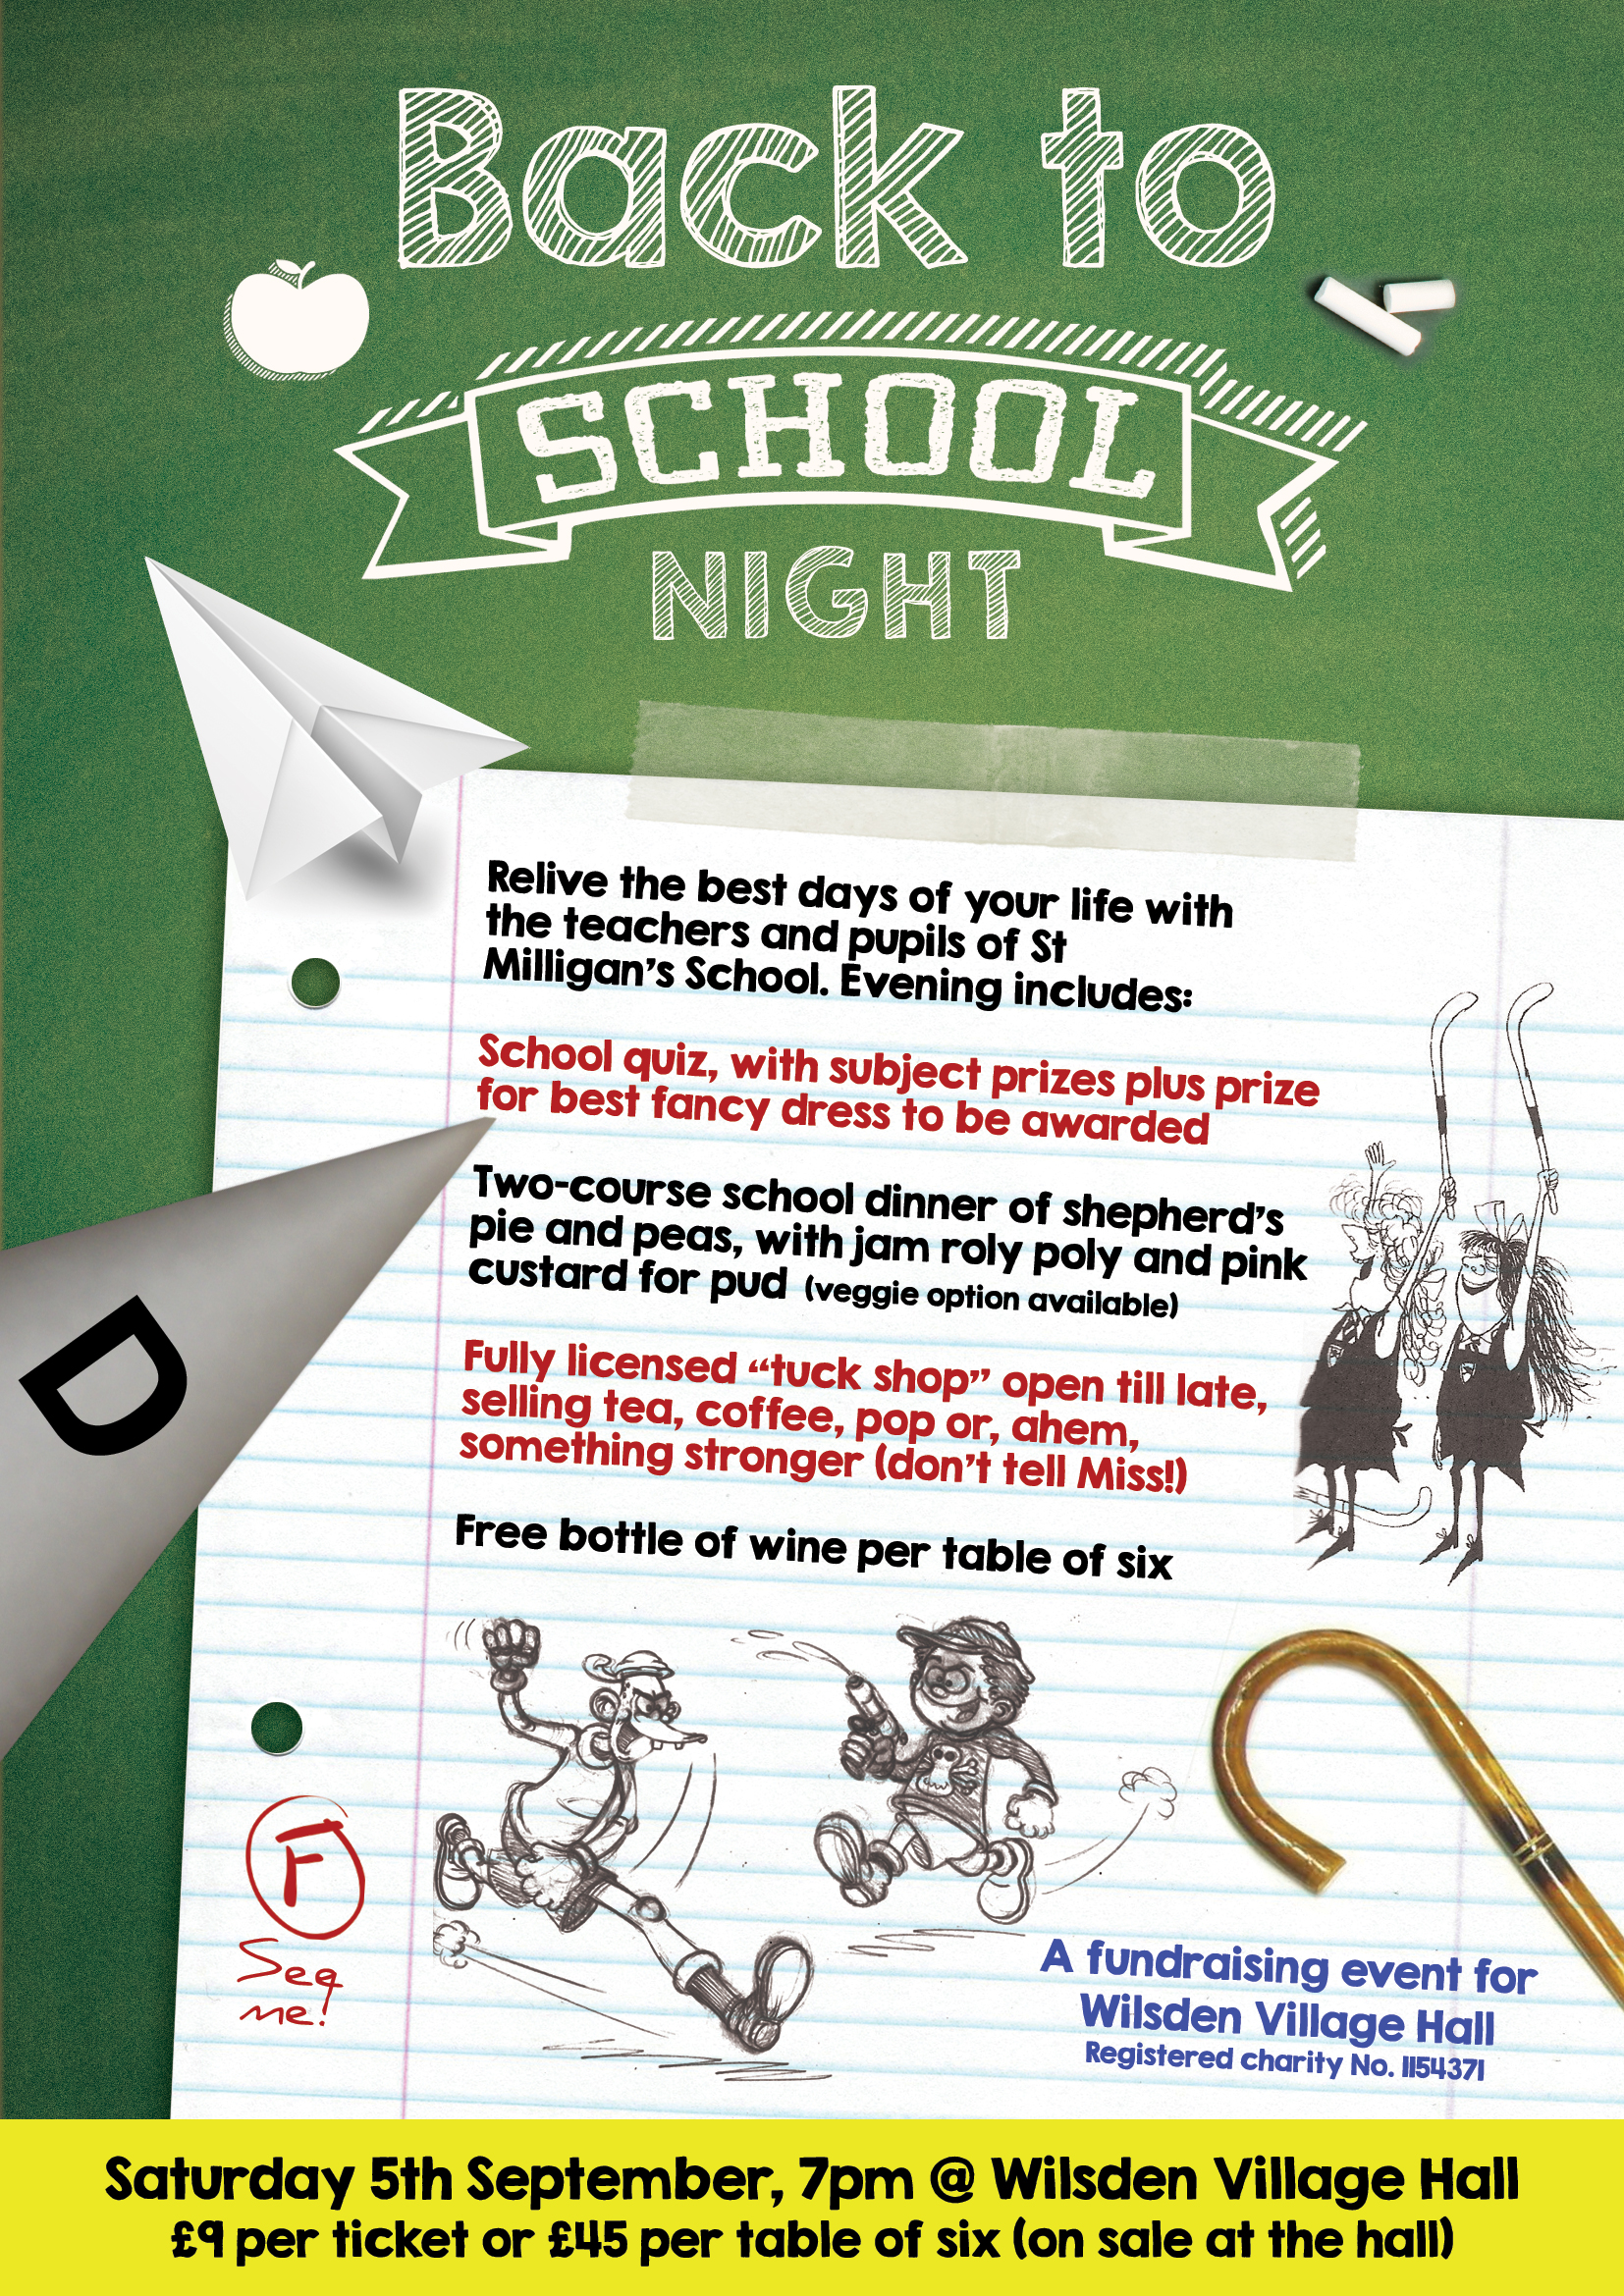 Back to
SCHOOL
NIGHT
Relive the best days of your life with
the teachers and pupils of St
Milligan's School. Evening includes:
School quiz, with subject prizes plus prize
for best fancy dress to be awarded
Two-course school dinner of shepherd's
pie and peas, with jam roly poly and pink
custard for pud (veggie option available)
Fully licensed “tuck shop” open till late,
selling tea, coffee, pop or, ahem,
something stronger (don't tell Miss!)
Free bottle of wine per table of six
D
F
See
me!
A fundraising event for
Wilsden Village Hall
Registered charity No. 1154371
Saturday 5th September, 7pm @ Wilsden Village Hall
£9 per ticket or £45 per table of six (on sale at the hall)